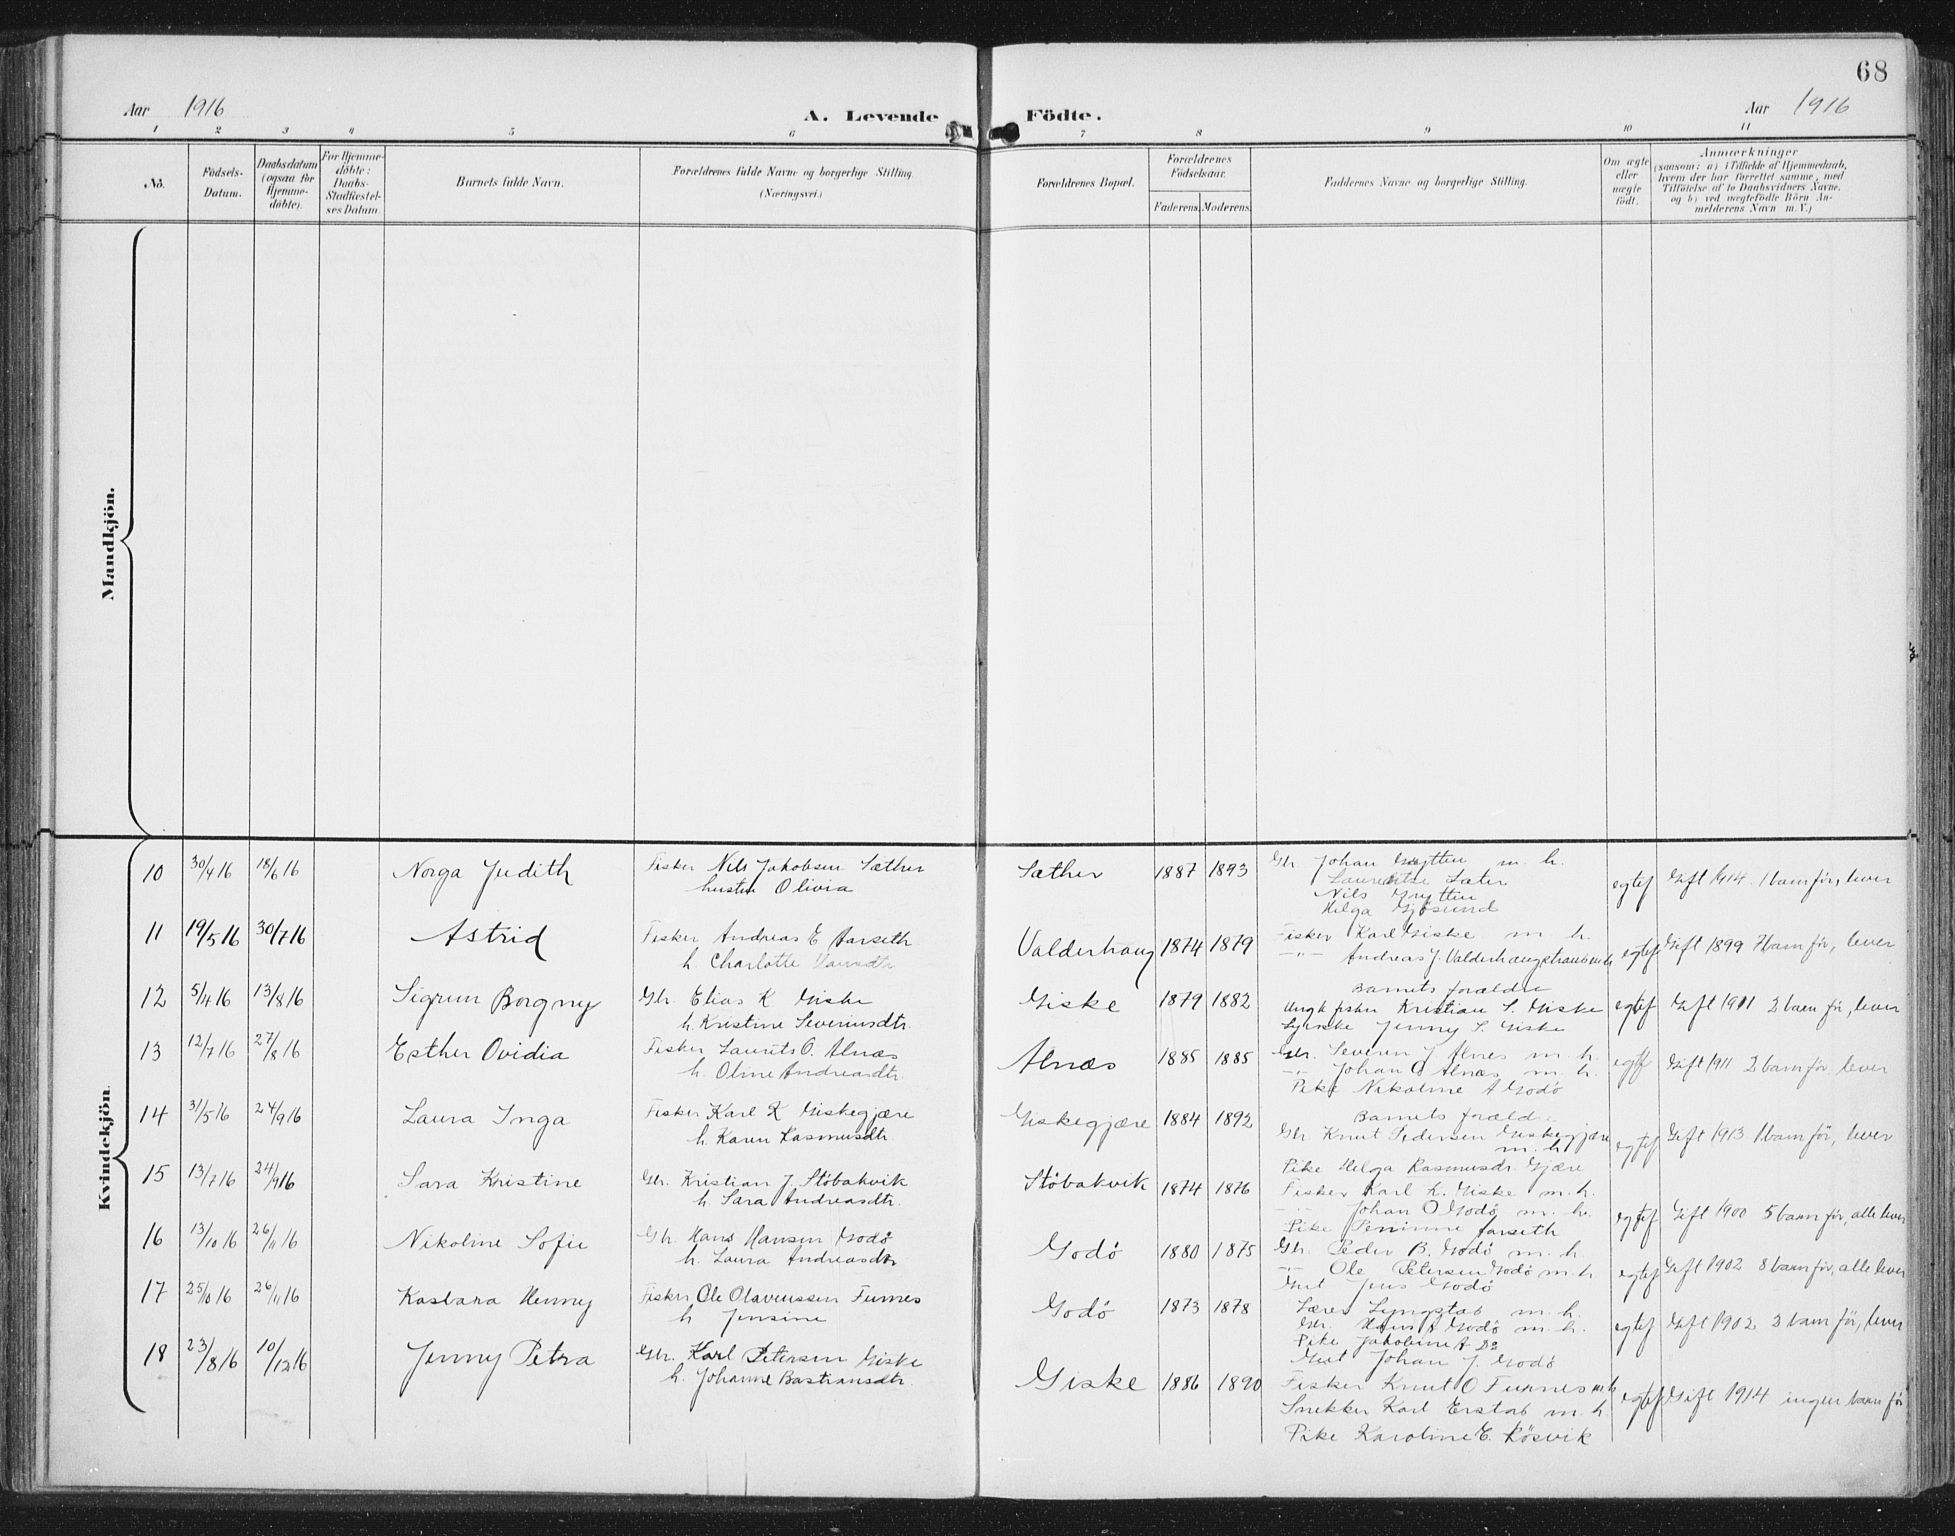 68
Aar 1916 A. Levende Födte. Aar 1916
1 2 3 4 5 6 7 8 9 10 11
No.
Födsels-
Datum.
Daabsdatum
(ogsaa for
Hjemme-
døbte).
For Hjemme-
døbte:
Daabs-
Stadfæstel-
ses Datum
Barnets fulde Navn.
Forældrenes fulde Navne og borgerlige Stilling.
(Næringsvei.)
Forældrenes Bopæl.
Forældrenes
Födselsaar.
Faderens. Moderens.
Faddernes Navne og borgerlige Stilling.
Om ægte
eller
uægte
födt.
Anmærkninger
(saasom: a) i Tilfælde af Hjemmedaab,
hvem der har forrettet samme, med
Tilföielse af to Daabsvidners Navne.
og b) ved uægtefödte Börn An-
melderens Navn m. V.)
Mandkjön.
Kvindekjön.
10 30/4 16 18/6 16 Norga Judith Fisker Nils Jakobsen Sæther
hustru Olivia
Sæther 1887 1893 Gbr. Johan Grytten m. h.
Sæter
Nils Grytten
Helga Gjøsund
egtef Gift 1914. 1 barn før, lever
11 19/5 16 30/7 16 Astrid Fisker Andreas E Aarseth
h Charlotte
Valderhaug 1874 1879 Fisker Karl Giske m. h.
-"- Andreas J. Valderhaug
Barnets forældre
egtef Gift 1899 7 barn før, lever
12 5/4 16 13/8 16 Sigrun Borgny Gbr. Elias K Giske
h. Kristine Severinsdtr.
Giske 1879 1882 Ungk fisker Kristian S. Giske
Jenny S. Giske
egtef Gift 1911 2 barn før, lever
13 12/7 16 27/8 16 Esther Ovidia Fisker Laurits O. Alnæs
h. Oline Andreasdtr.
Alnæs 1885 1885 Gbr. Severin J Alnes m. h.
-"- Johan O Alnæs m. h.
Pike Nikoline A Godø
egtef Gift 1911 2 barn før. lever
14 31/5 16 24/9 16 Laura Inga Fisker Karl K Giskegjære
h. Karen Rasmusdtr
Giskegjære 1884 1892 Barnets foræld.
Gbr Knut Pedersen Giskegjære
m. h.
Pike Helga Rasmusdr. Gjære
egtef Gift 1913 1 barn før, lever
15 13/7 16 24/9 16 Sara Kristine Gbr. Kristian J. Støbakvik
h. Sara Andreasdtr.
Støbakvik 1874 1876 Fisker Karl K. Giske m. h.
Johan O Godø m. h.
Pike Aarseth
egtef Gift 1900 5 barn før, alle lever
16 13/10 16 26/11 16 Nikoline Sofie Gbr. Hans Hansen Godø
h. Laura Andreasdtr
Godø 1880 1875 Gbr. Peder B. Godø m. h
-"- Ole Petersen Godø m. h
Jens Godø
egtef Gift 1902 8 barn før, alle lever
17 25/10 16 26/11 16 Kasbara Henny Fisker Ole Olavenssen Furnes
h Jensine
Godø 1873 1878 Lærer m. h.
Gbr. Hans A Godø m. h.
Pike Jakobine A Do
Johan J. Godø
egtef Gift 1902 2 barn før, lever
18 23/8 16 10/12 16 Jenny Petra Gbr. Karl Petersen Giske
h. Johanne Bastiansdtr.
Giske 1886 1890 Fisker Knut O Furnes m. h
Snekker Karl Erstad m. h
Pike Karoline E. Røsvik
egtef Gift 1914 ingen barn før